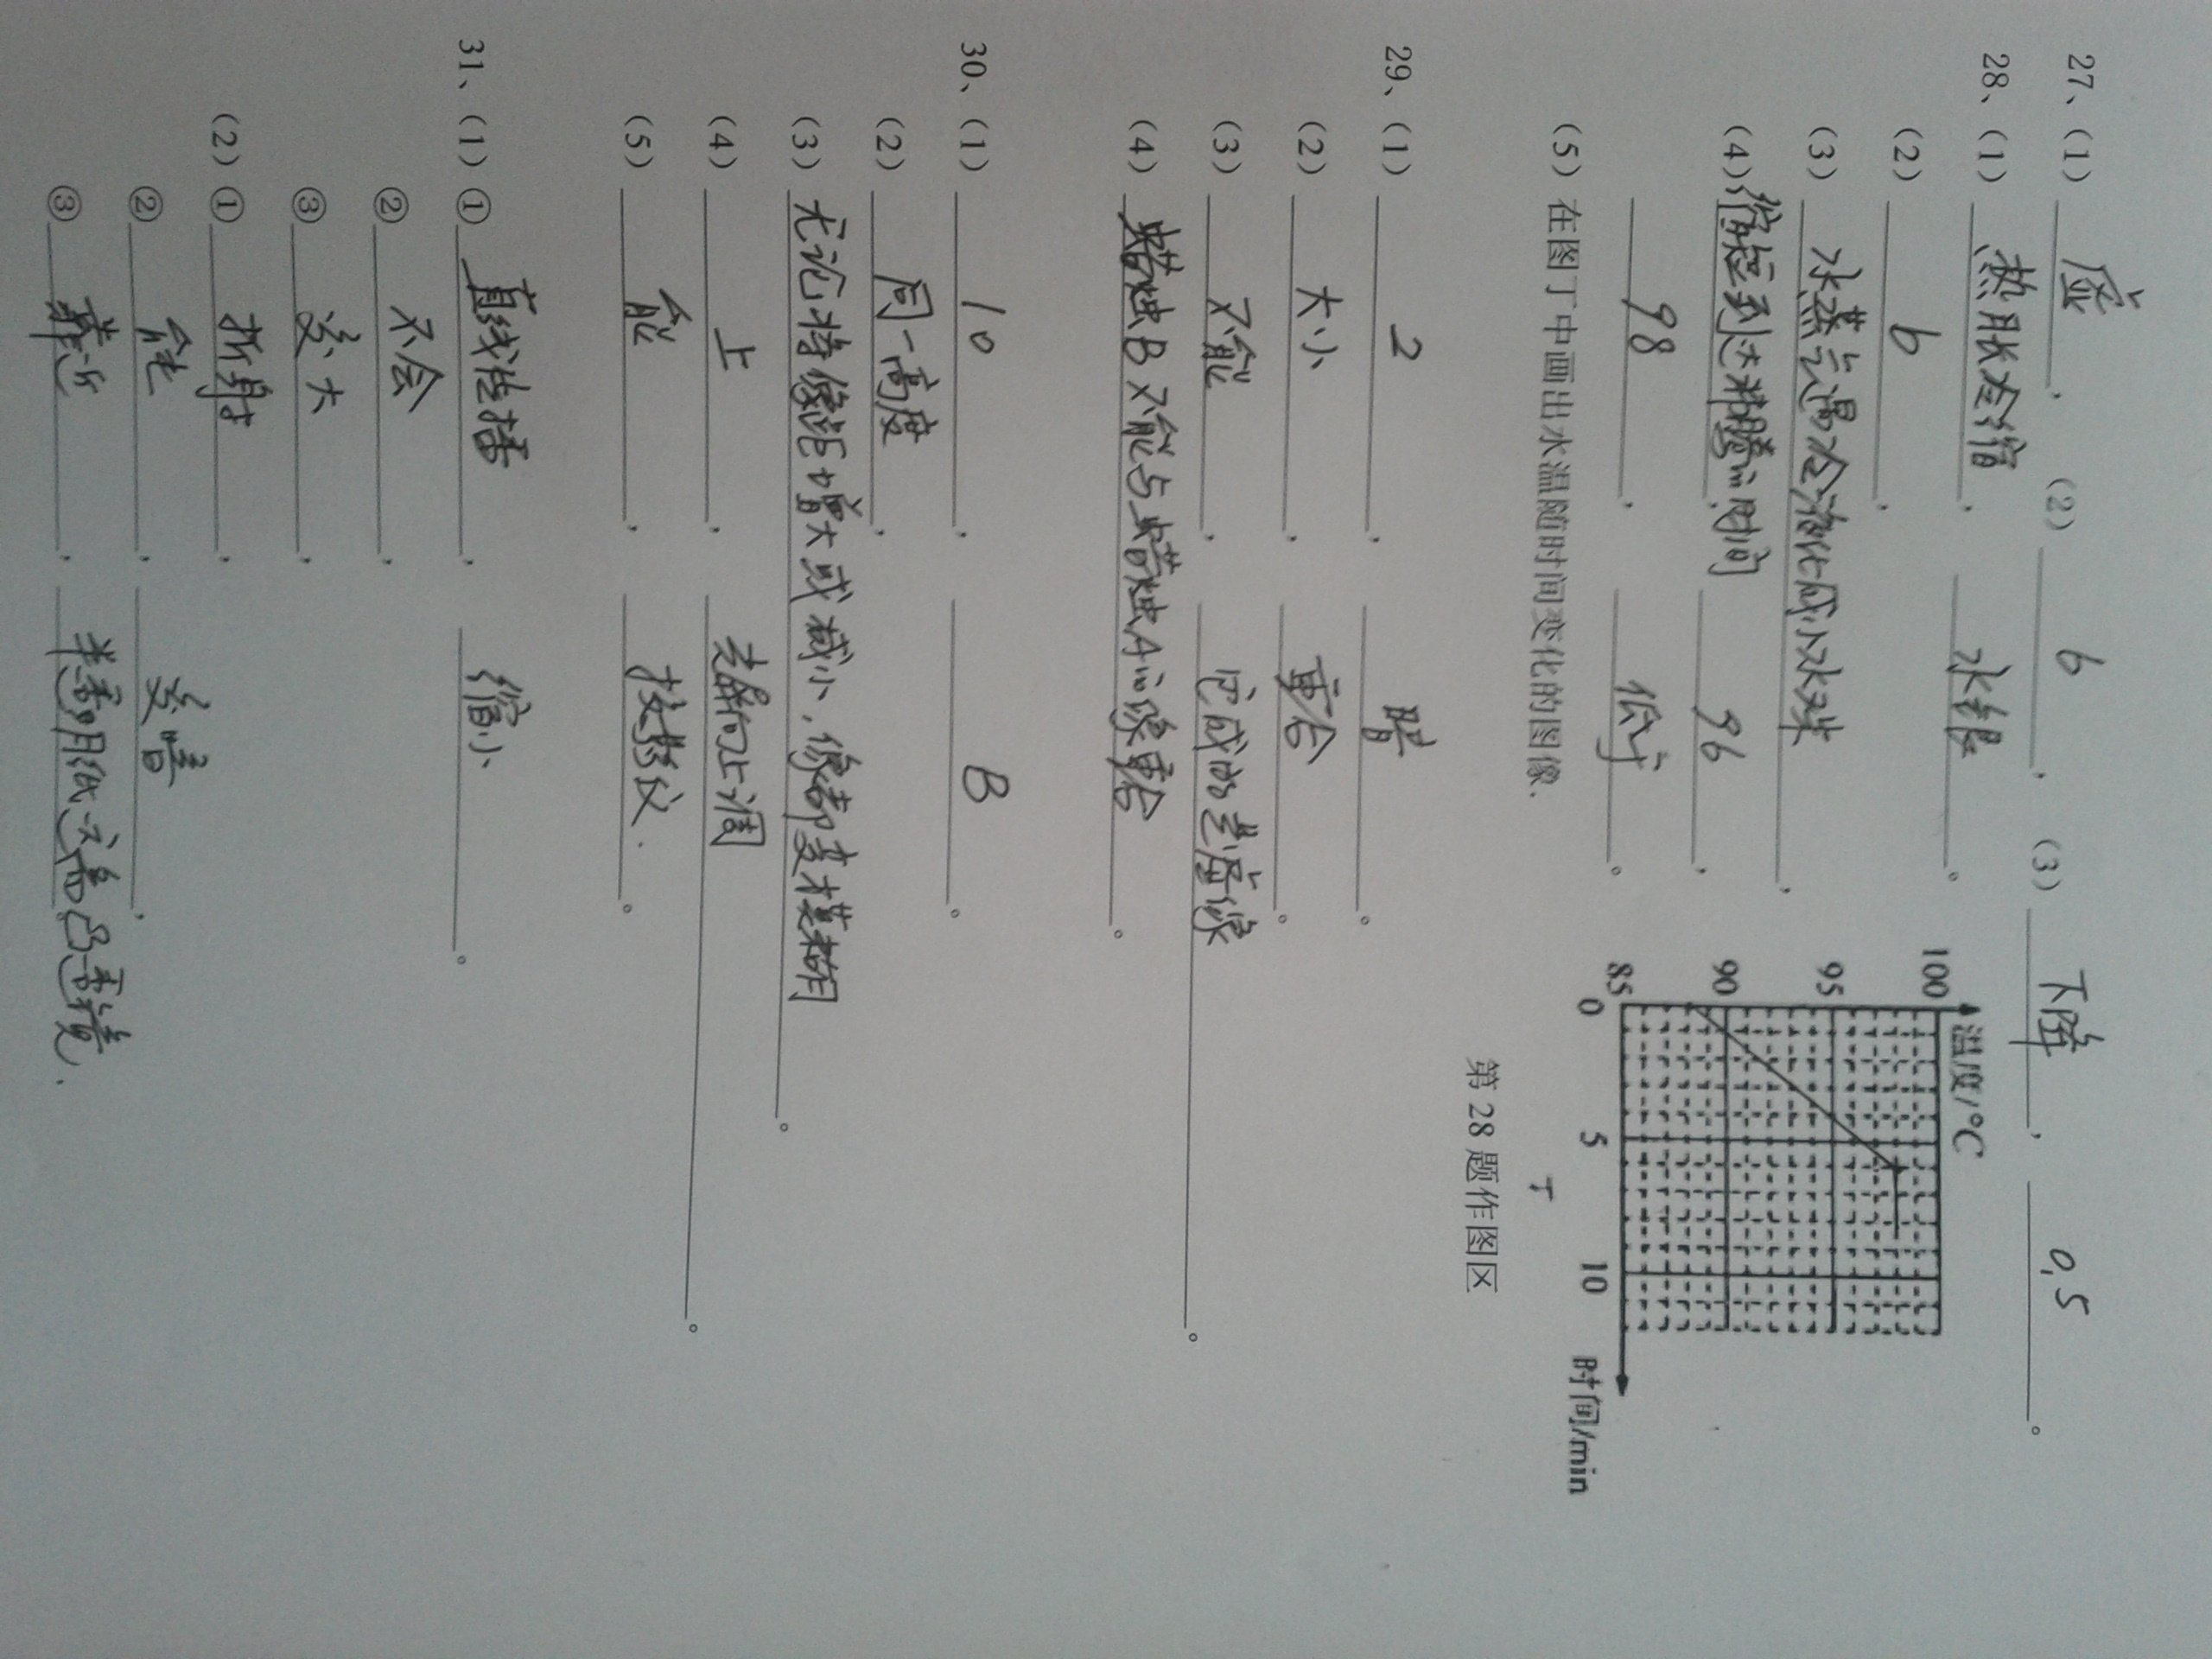 27、(1) 虚 , (2) 6 , (3) 下降 , 0.5 。
28、(1) 热胀冷缩 , 水银 。
(2) b ,
(3) 水蒸气遇冷液化成小水珠 ,
(4) 缩短到达沸腾的时间 , 96 ,
98 , 低于 。
(5) 在图丁中画出水温随时间变化的图像.
温度/°C
100
95
90
85
0 5 10 时间/min
丁
第 28 题作图区
29、(1) 2 , 暗 。
(2) 大小 , 重合 。
(3) 不能 , 它成的是虚像 。
(4) 蜡烛B不能与蜡烛A的像重合 。
30、(1) 10 , B 。
(2) 同一高度 ,
(3) 无论将像距增大或减小,像都变模糊 。
(4) 上 , 光屏向上调 。
(5) 能 , 投影仪 . 。
31、(1) ① 直线传播 , 缩小 。
② 不会 ,
③ 变大 ,
(2) ① 折射 ,
② 能 , 变暗 ,
③ 靠近 , 半透明纸, 远离凸透镜.